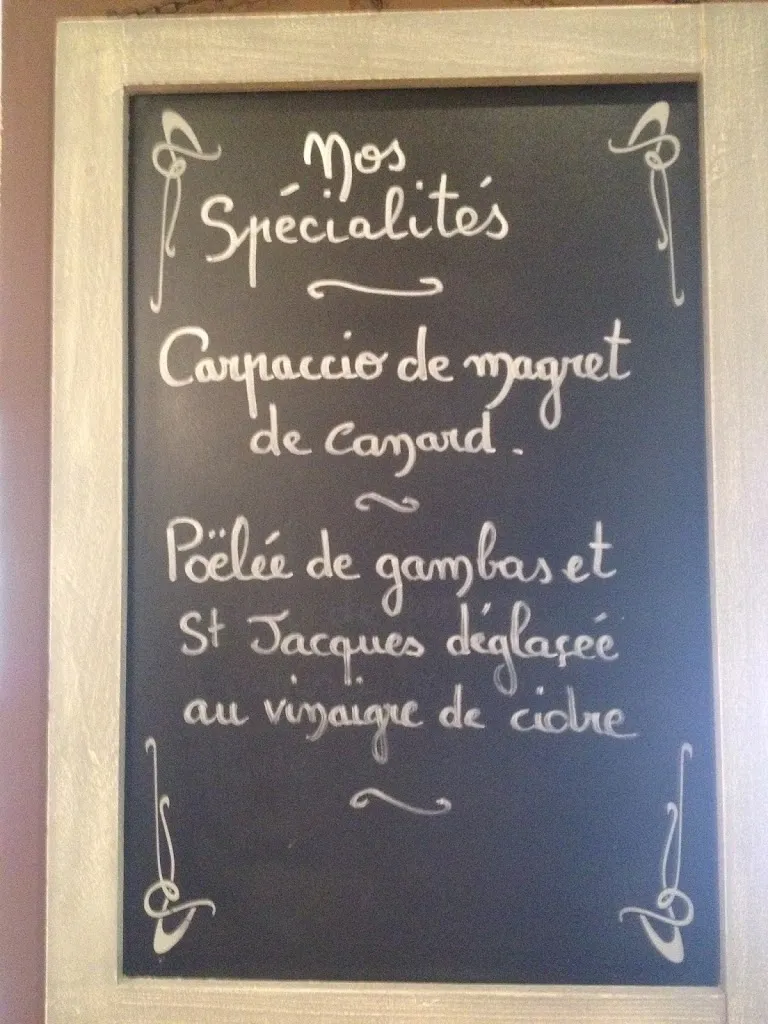 Nos
Spécialités
Carpaccio de magret
de canard.
Poëlée de gambas et
St Jacques déglaçée
au vinaigre de cidre